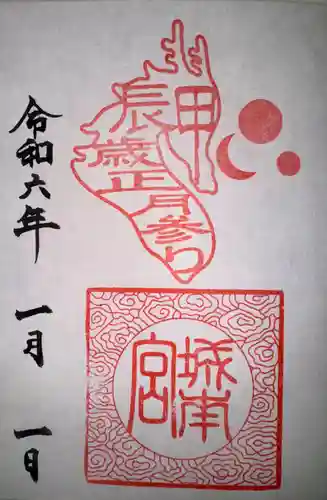 甲
辰
歳
正
月
参
り
城南
宮
令和六年
一月
一日